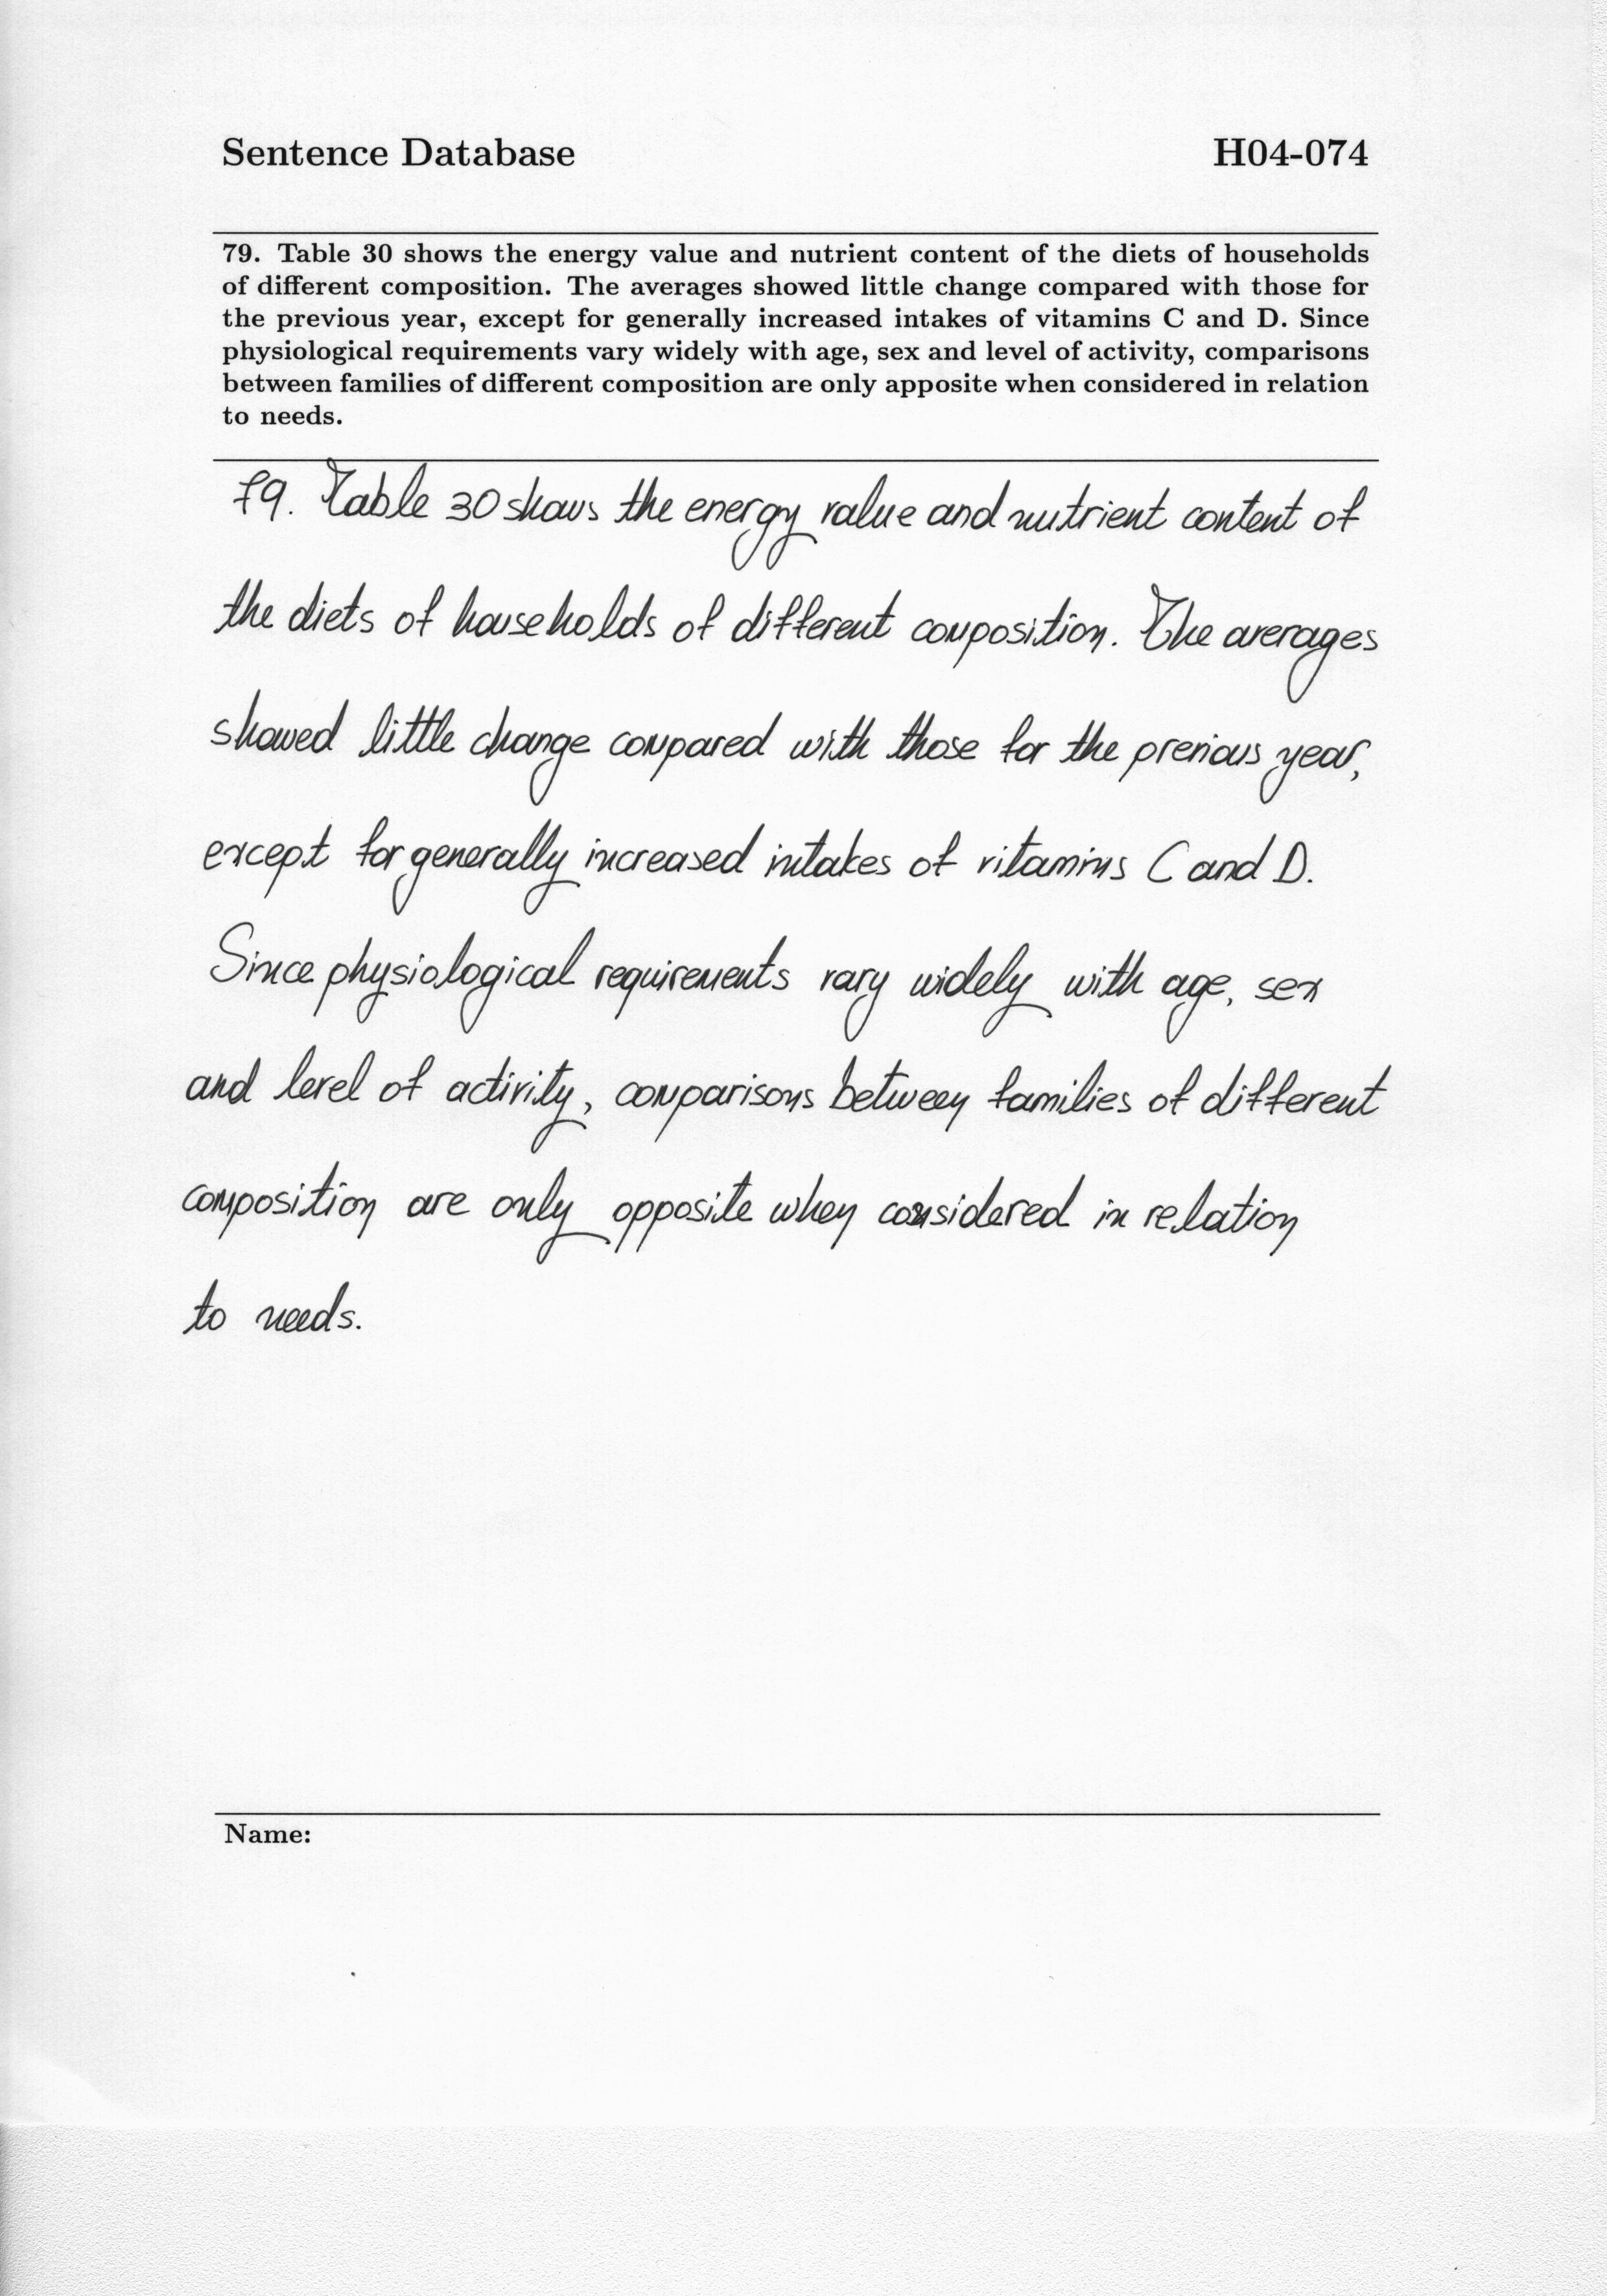 Sentence Database H04-074
79. Table 30 shows the energy value and nutrient content of the diets of households
of different composition. The averages showed little change compared with those for
the previous year, except for generally increased intakes of vitamins C and D. Since
physiological requirements vary widely with age, sex and level of activity, comparisons
between families of different composition are only apposite when considered in relation
to needs.
79. Table 30 shows the energy value and nutrient content of
the diets of households of different composition. The averages
showed little change compared with those for the previous year,
except for generally increased intakes of vitamins C and D.
Since physiological requirements vary widely with age, sex
and level of activity, comparisons between families of different
composition are only opposite when considered in relation
to needs.
Name: